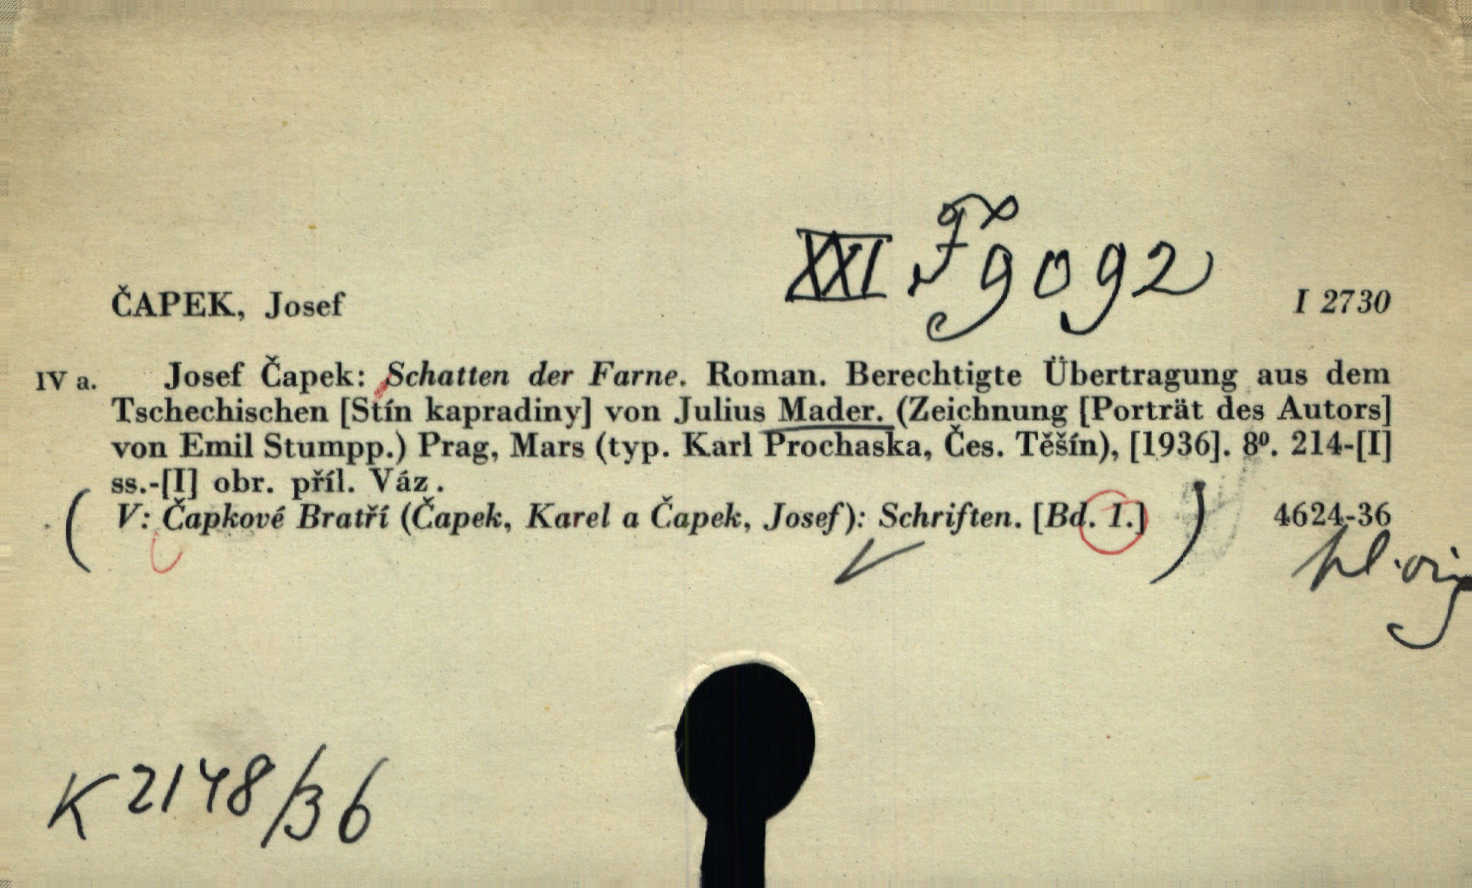 XXI F 9092
ČAPEK, Josef
I 2730
IV a. Josef Čapek: Schatten der Farne. Roman. Berechtigte Übertragung aus dem
Tschechischen [Stín kapradiny] von Julius Mader. (Zeichnung [Porträt des Autors]
von Emil Stumpp.) Prag, Mars (typ. Karl Prochaska, Čes. Těšín), [1936]. 8⁰. 214-[I]
ss.-[I] obr. příl. Váz.
(V: Čapkové Bratří (Čapek, Karel a Čapek, Josef): Schriften. [Bd. 1.]) 4624-36
K 2148/36